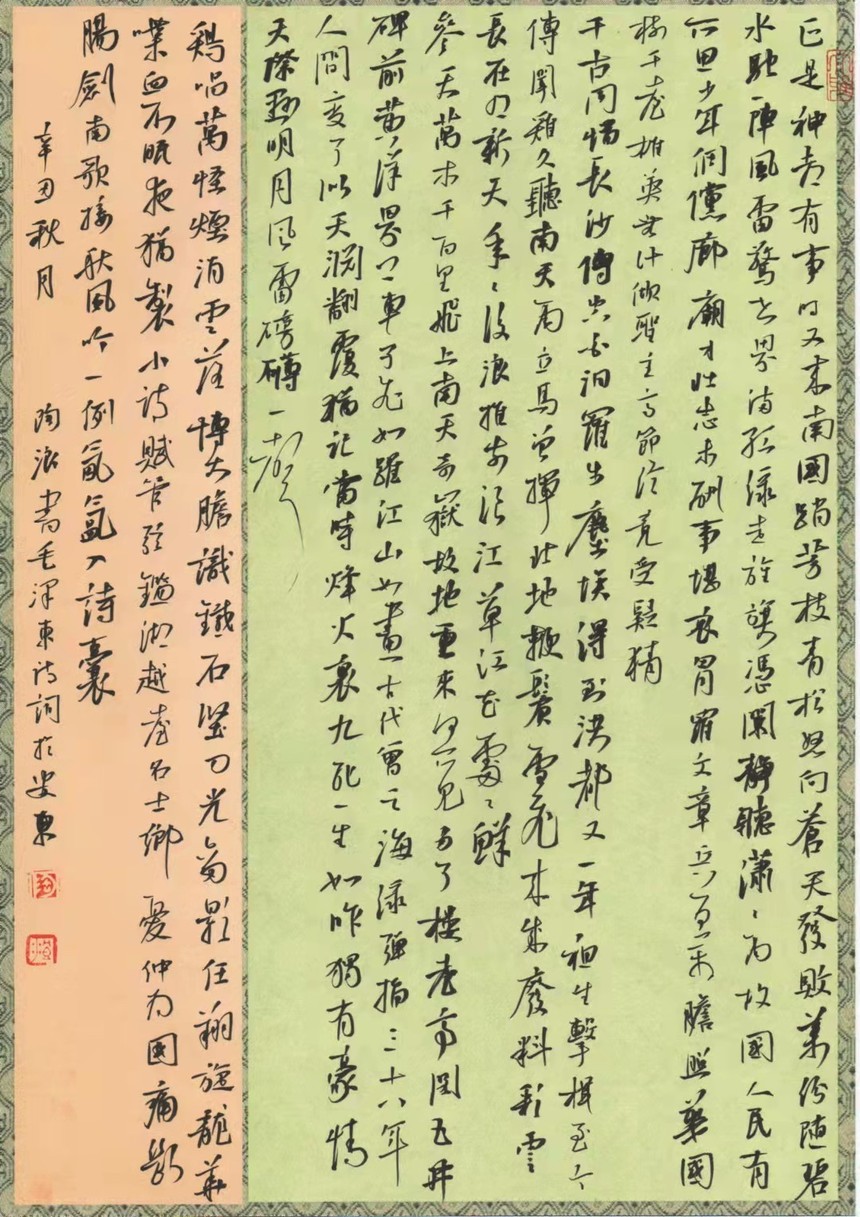 正是神都有事时又来南國踏芳枝青松怒向蒼天發敗葉纷随碧
水馳一陣風雷驚世界满街红绿走旌旗憑闌靜聽瀟瀟雨故國人民有
所思少年倜儻廊廟才壮志未酬事堪哀胸羅文章兵百萬膽照華國
樹千臺雄英無计傾聖主高節终竟受疑猜
千古同惜長沙傅空白汨羅步塵埃得到洛都又一年祖生擊楫至今
傳聞雞久聽南天雨立馬曾揮北地鞭鬓雪飛来成廢料彩雲
長在有新天年年後浪推前浪江草江花處處鮮
參天萬木千百里飛上南天奇嶽故地重来何所见多了樓臺亭閣五井
碑前黄洋界上車子飛如躍江山如畫古代曾云海绿彈指三十八年
人間变了似天渊翻覆猶记當時烽火裏九死一生如昨獨有豪情
天際懸明月風雷磅礴一聲
鷄唱萬怪煙消雲落博大膽識鐵石堅刀光劍影任翔旋龍華
喋血不眠夜猶製小詩賦管弦鑑湖越臺名士鄉憂忡为國痛斷
腸劍南歌接秋風吟一例氤氲入詩囊
辛丑秋月 陶浪書毛澤東詩詞於婁東